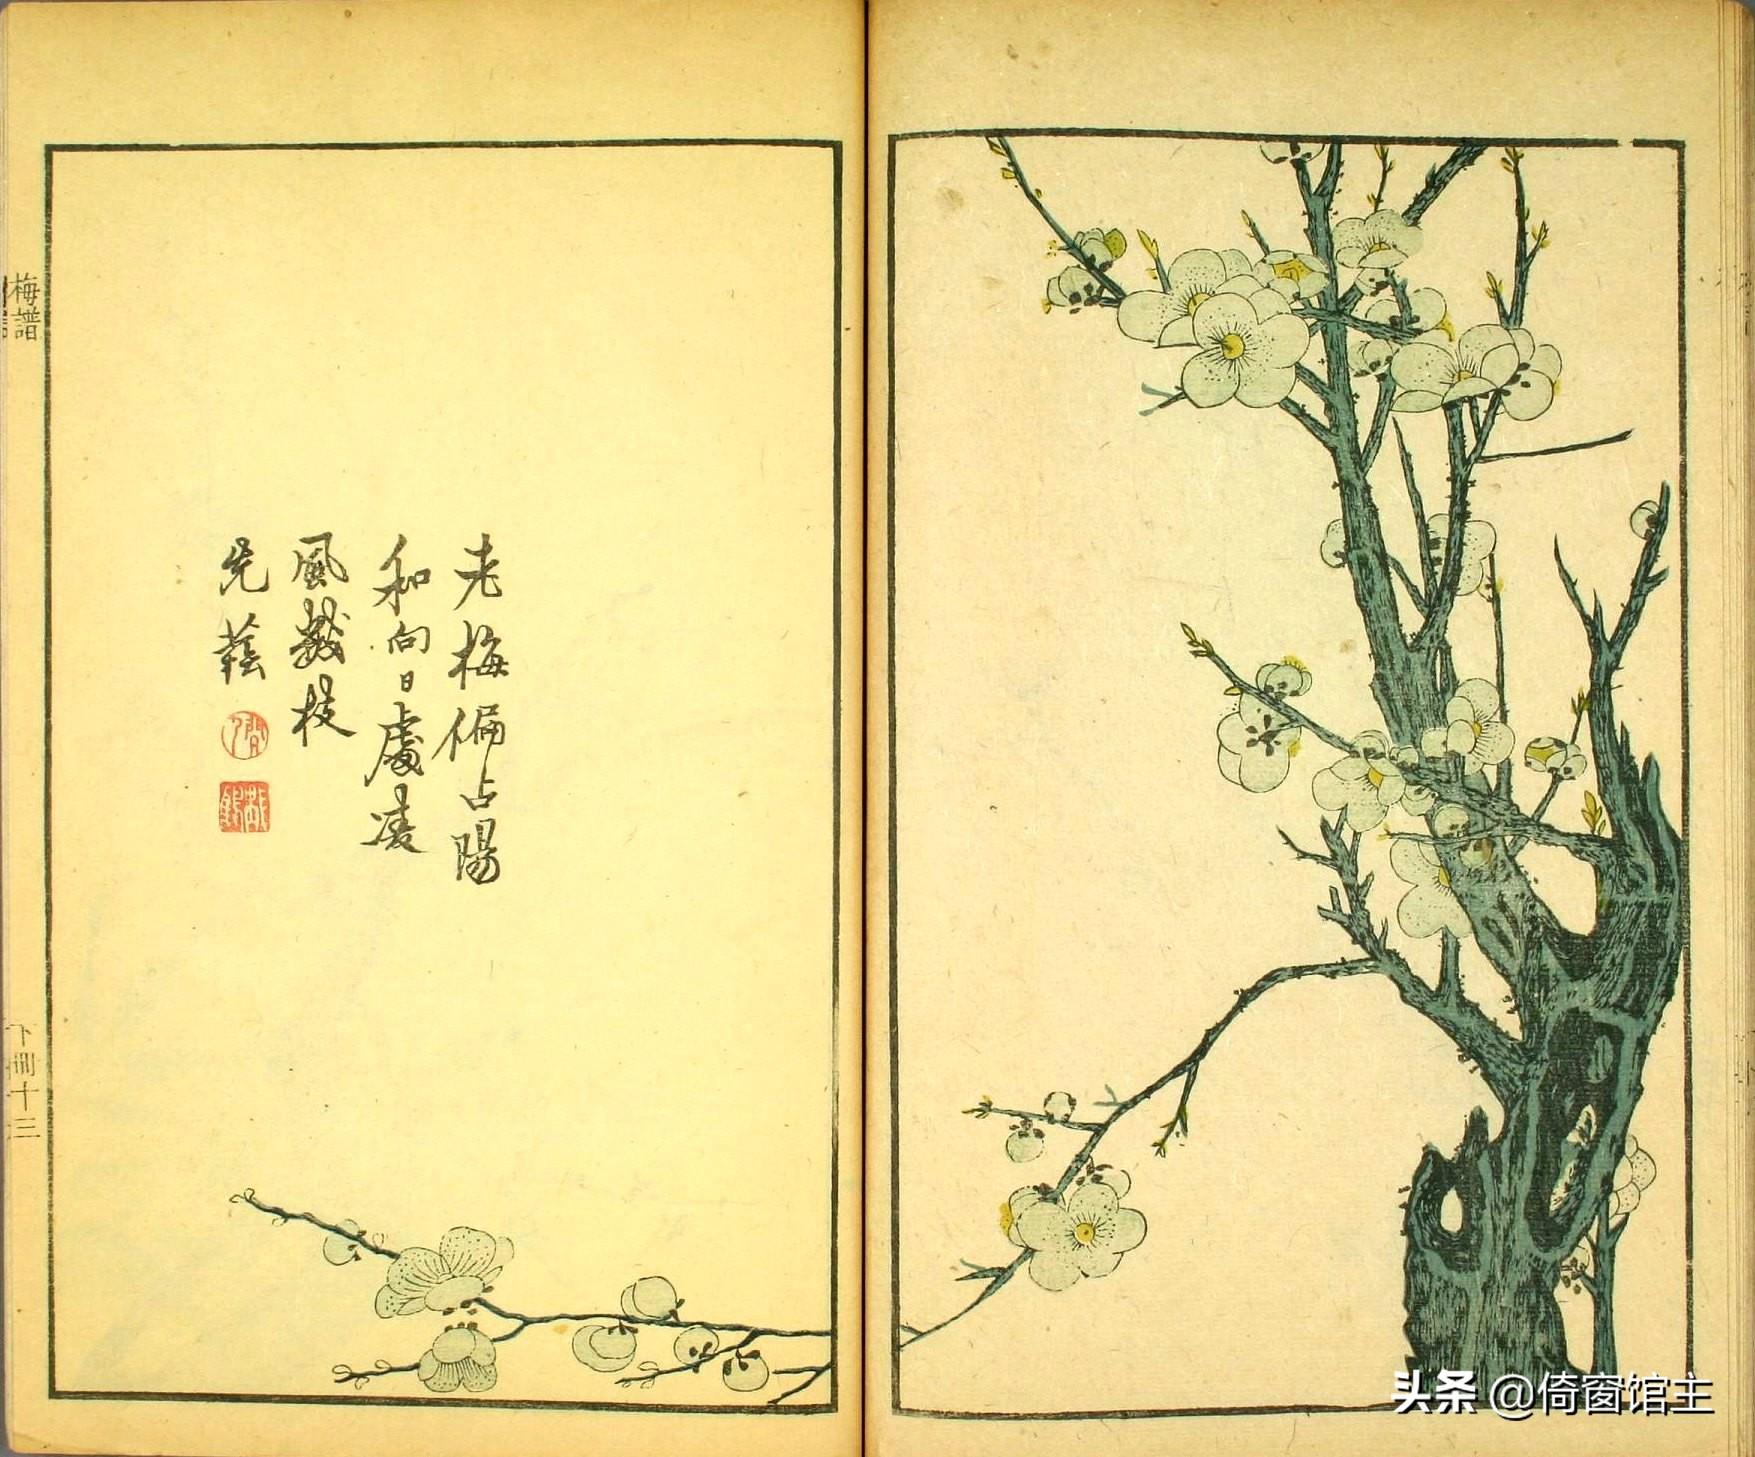 老梅偏占陽
和向日處凌
風數枝
先
梅譜
下冊十三
头条 @倚窗馆主